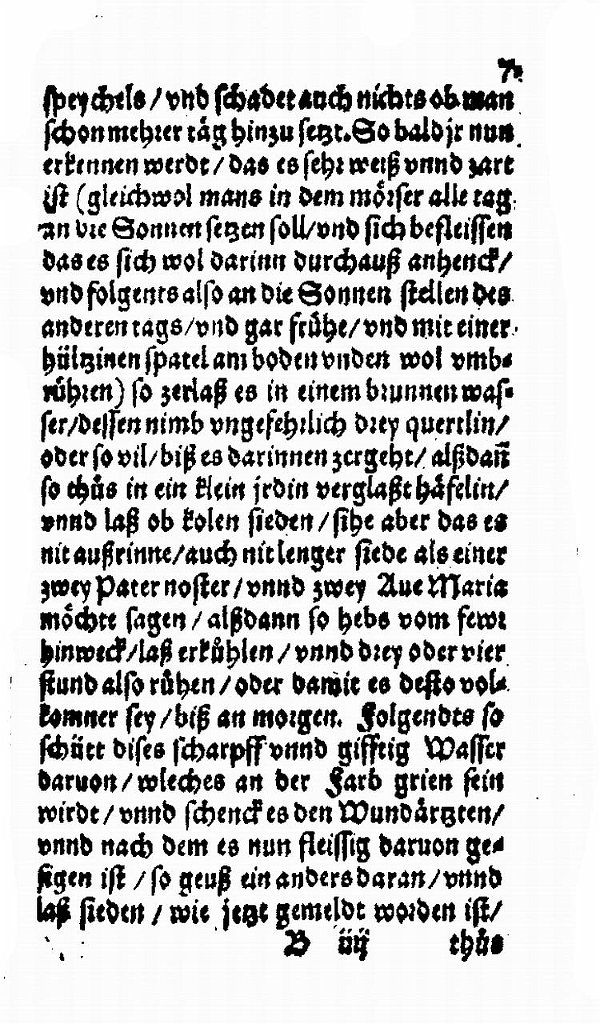 7.
speychels / vnd schadet auch nichts ob man
schon mehrer täg hinzu setzt. So bald jr nun
erkennen werdt / das es sehr weiß vnnd zart
ist (gleichwol mans in dem mörser alle tag
an die Sonnen setzen soll/vnd sich befleissen
das es sich wol darinn durchauß anhenck/
vnd folgents also an die Sonnen stellen des
anderen tags/vnd gar frůhe/ vnd mit einer
hültzinen spatel am boden vnden wol vmb⸗
růhren) so zerlaß es in einem brunnen was⸗
ser/dessen nimb vngefehrlich drey quertlin/
oder so vil/biß es darinnen zergeht/ alßdañ
so thůs in ein klein jrdin verglaßt häfelin/
vnnd laß ob kolen sieden / sihe aber das es
nit außrinne/auch nit lenger siede als einer
zwey Pater noster / vnnd zwey Aue Maria
möchte sagen / alßdann so hebs vom fewr
hinweck/laß erkůhlen / vnnd drey oder vier
stund also růhen / oder damit es desto vol⸗
komner sey / biß an morgen. Folgendts so
schütt dises scharpff vnnd gifftig Wasser
daruon / wleches an der Farb grien sein
wirdt / vnnd schenck es den Wundärtzten/
vnnd nach dem es nun fleissig daruon ge⸗
sigen ist / so geuß ein anders daran / vnnd
laß sieden / wie jetzt gemeldt worden ist/
B iiij thůs